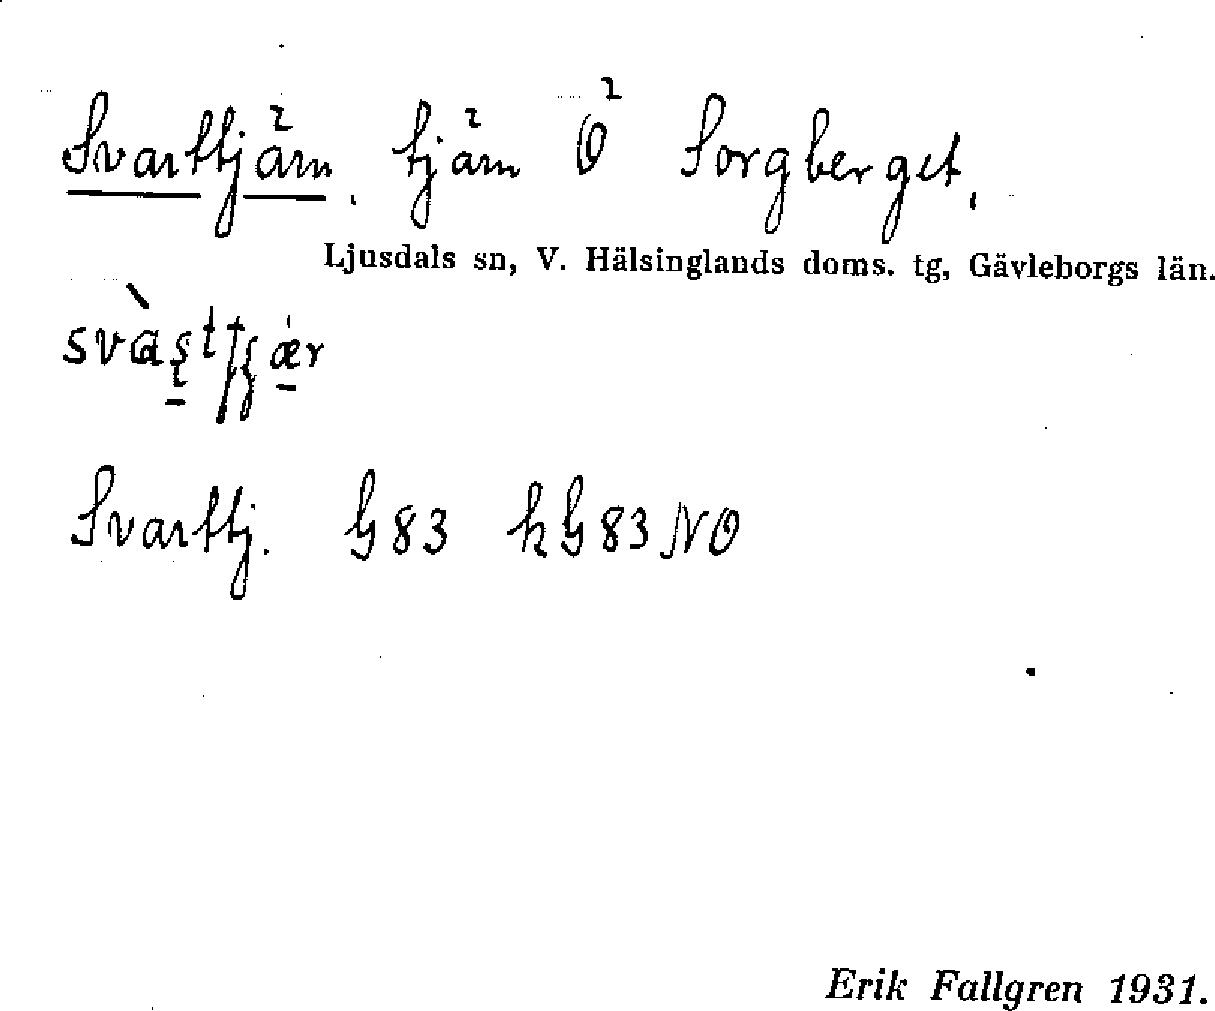 Svarttjärn. tjärn Ö Sorgberget.
Ljusdals sn, V. Hälsinglands doms. tg, Gävleborgs län.
Svarttj. G83 hG83NO
Erik Fallgren 1931.